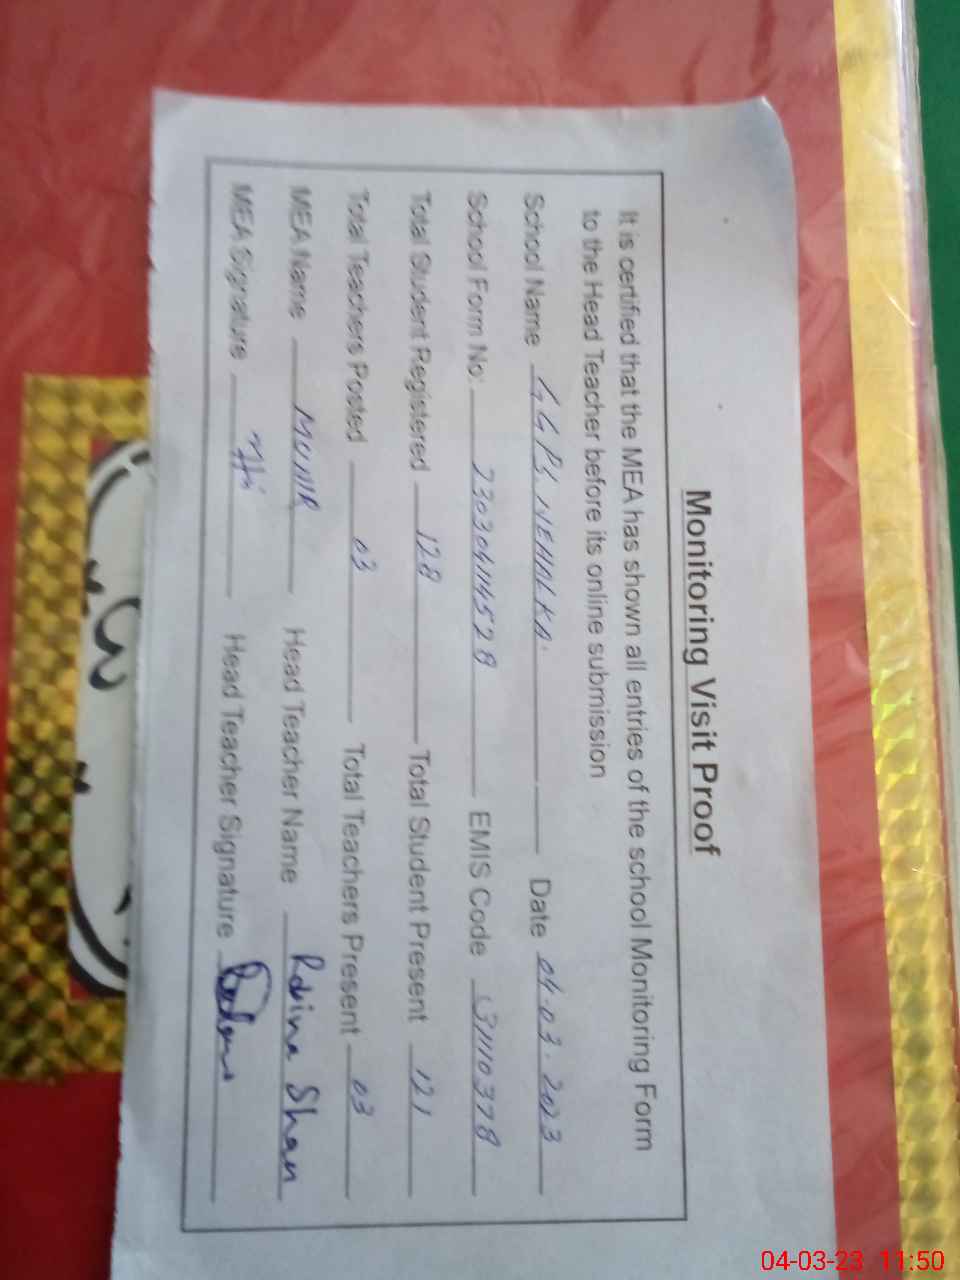 Monitoring Visit Proof
It is certified that the MEA has shown all entries of the school Monitoring Form
to the Head Teacher before its online submission
School Name GGPS NEHALKA. Date 04.03.2023
School Form No: 230304114528 EMIS Code 31110378
Total Student Registered 128 Total Student Present 121
Total Teachers Posted 03 Total Teachers Present 03
MEA Name MUNIR Head Teacher Name Robina Shan
MEA Signature Head Teacher Signature
04-03-23 11:50